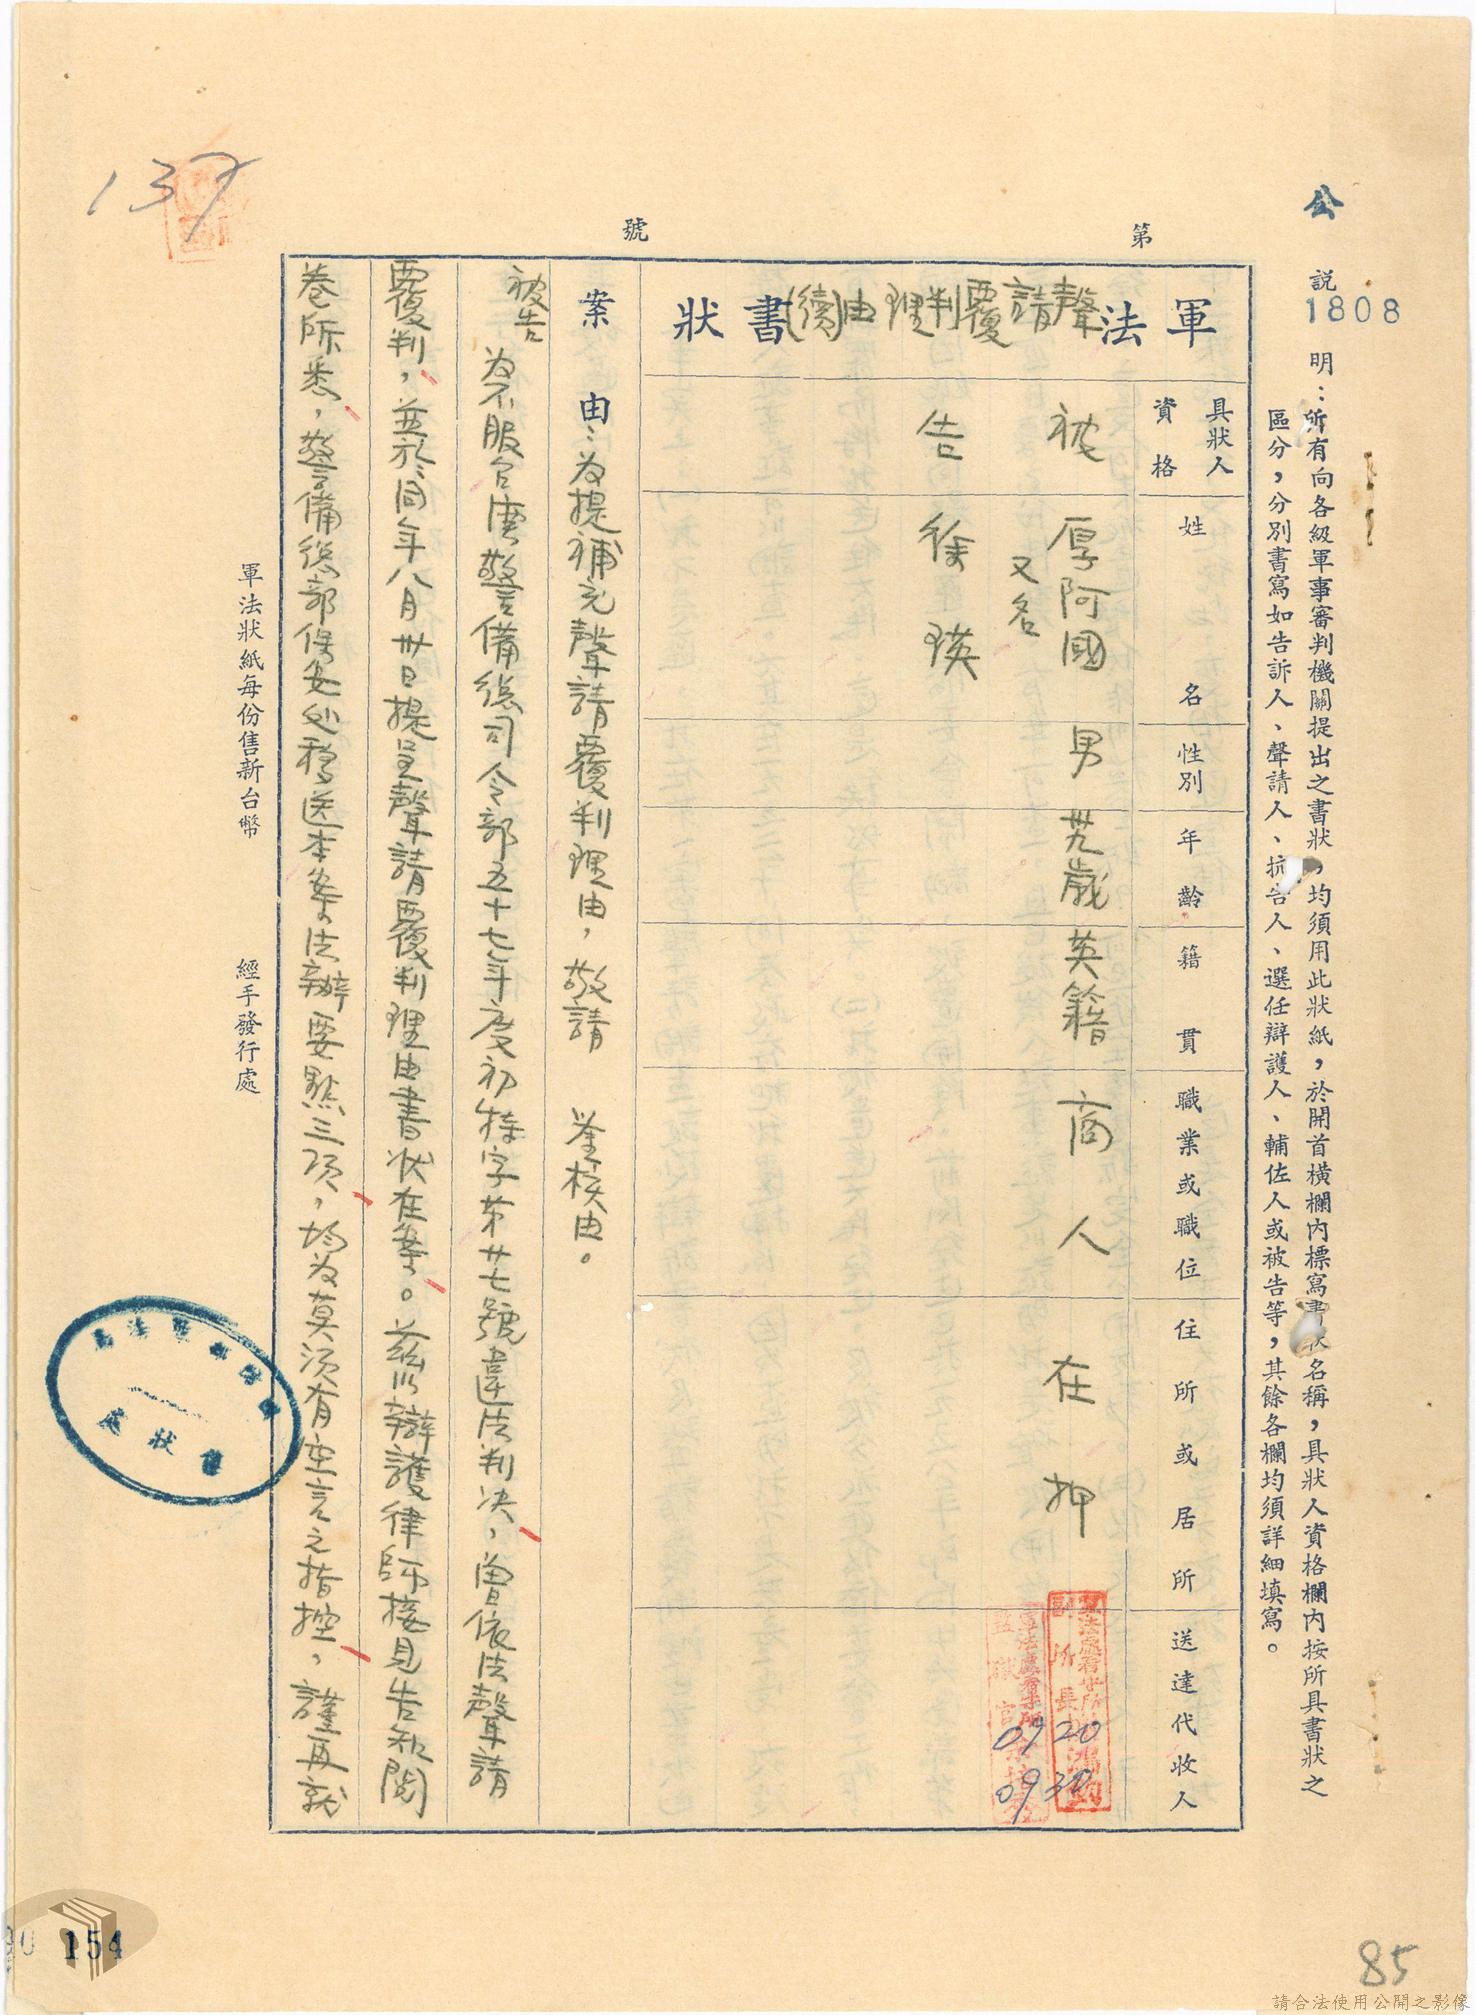 公
1808
說明：所有向各級軍事審判機關提出之書狀，均須用此狀紙，於開首橫欄內標寫書狀名稱，具狀人資格欄內按所具書狀之
區分，分別書寫如告訴人、聲請人、抗告人、選任辯護人、輔佐人或被告等，其餘各欄均須詳細填寫。
第 號
軍法聲請覆判理由(續)書狀
具狀人資格 姓名 性別 年齡 籍貫 職業或職位 住所或居所 送達代收人
被告 厚阿國 男 卅九歲 英籍 商人 在押
又名
徐瑛
副所長
0920
監獄官
0930
案由：為提補充聲請覆判理由，敬請 鑒核由。
被告為不服台灣警備總司令部五十七年度初特字第廿七號違法判决，曾依法聲請
覆判，並於同年八月卅日提呈聲請覆判理由書狀在案。茲以辯護律師接見告知閱
卷所悉，警備總部保安处移送本案法辦要點三項，均為莫須有空言之指控，謹再就
軍法狀紙每份售新台幣 經手發行處
書狀處
137
154
85
請合法使用公開之影像